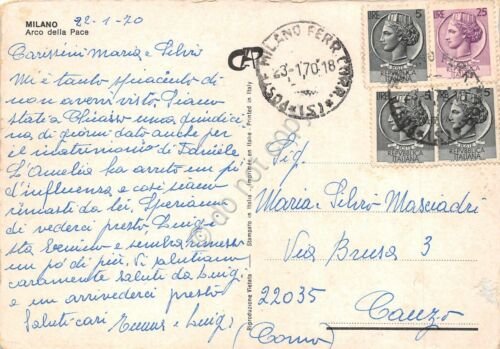 MILANO
Arco della Pace
22-1-70
Carissimi Maria e Silvio
Mi è tanto spiacente di
non avervi visto. Siamo
stati a Chiasso una quindici
na di giorni dato anche per
il matrimonio di Daniele
L'Amelia ha avuto un po'
d'influenza e così siamo
rimasti da lei. Speriamo
di vedervi presto. Luigi
sta benino e sembra rimesso
un po' di più. Vi salutiamo
caramente saluti da Luigi
e un arrivederci presto
Saluti cari e Luigi
Riproduzione Vietata
Stampato in Italia - Imprimé en Italie - Printed in Italy
MILANO FERR. CORR.
23-1.70.18
(ST) POSTA
LIRE 5
LIRE 25
REPUBBLICA
ITALIANA
Sig.
Maria e Silvio Masciadri
Via Brusa 3
22035 Canzo
(Como)